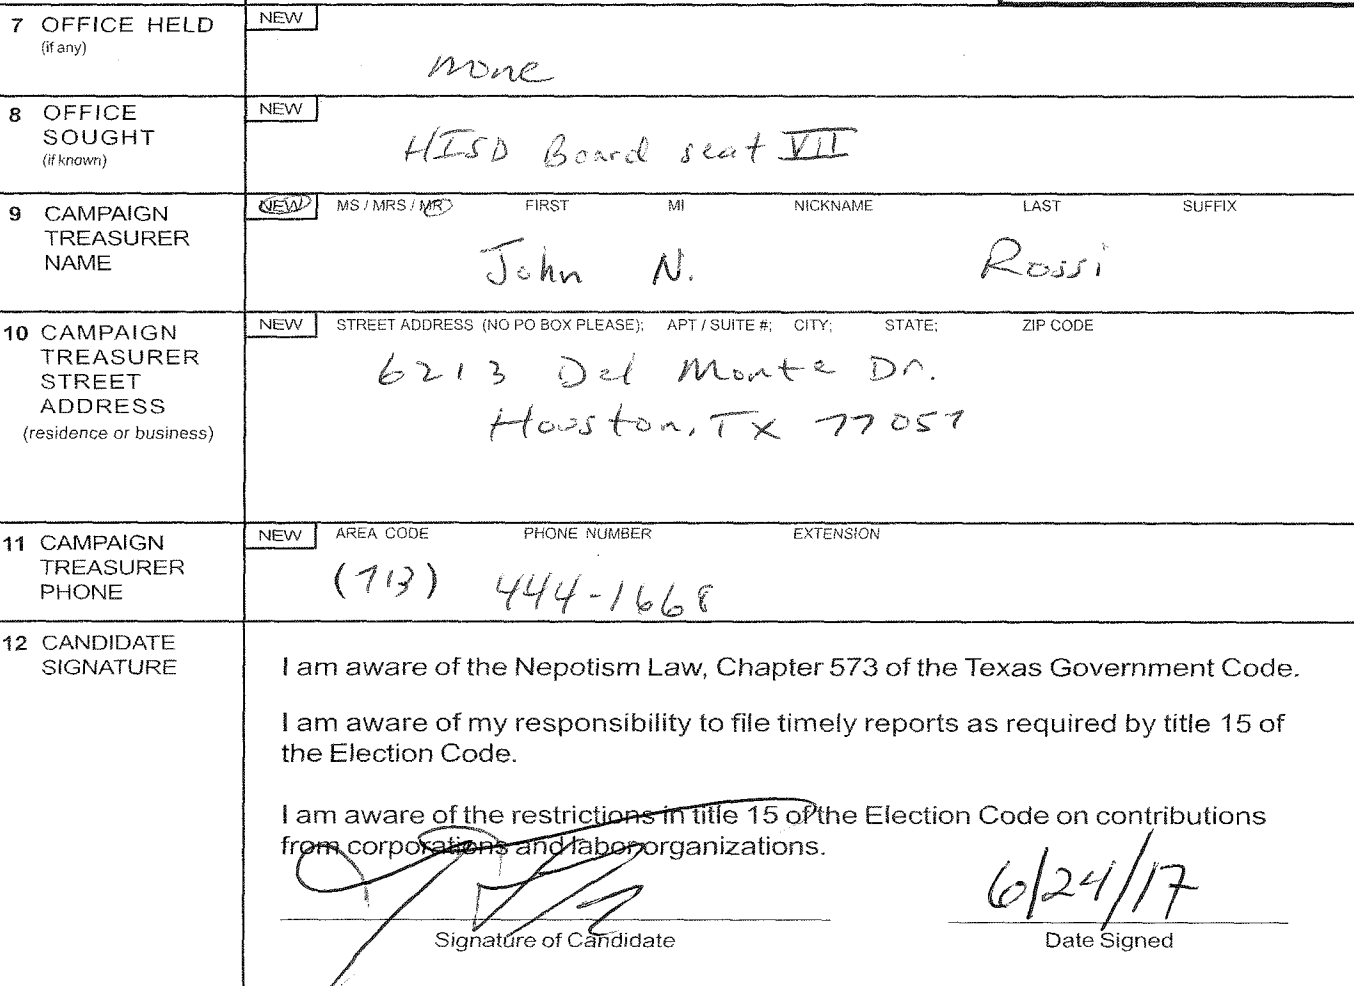 7 OFFICE HELD
(if any)
NEW
none
8 OFFICE
SOUGHT
(if known)
NEW
HISD Board seat VII
9 CAMPAIGN
TREASURER
NAME
NEW MS / MRS / MR FIRST MI NICKNAME LAST SUFFIX
John N. Rossi
10 CAMPAIGN
TREASURER
STREET
ADDRESS
(residence or business)
NEW STREET ADDRESS (NO PO BOX PLEASE); APT / SUITE #; CITY; STATE; ZIP CODE
6213 Del Monte Dr.
Houston, Tx 77057
11 CAMPAIGN
TREASURER
PHONE
NEW AREA CODE PHONE NUMBER EXTENSION
(713) 444-1668
12 CANDIDATE
SIGNATURE
I am aware of the Nepotism Law, Chapter 573 of the Texas Government Code.
I am aware of my responsibility to file timely reports as required by title 15 of
the Election Code.
I am aware of the restrictions in title 15 of the Election Code on contributions
from corporations and labor organizations.
6/24/17
Signature of Candidate Date Signed